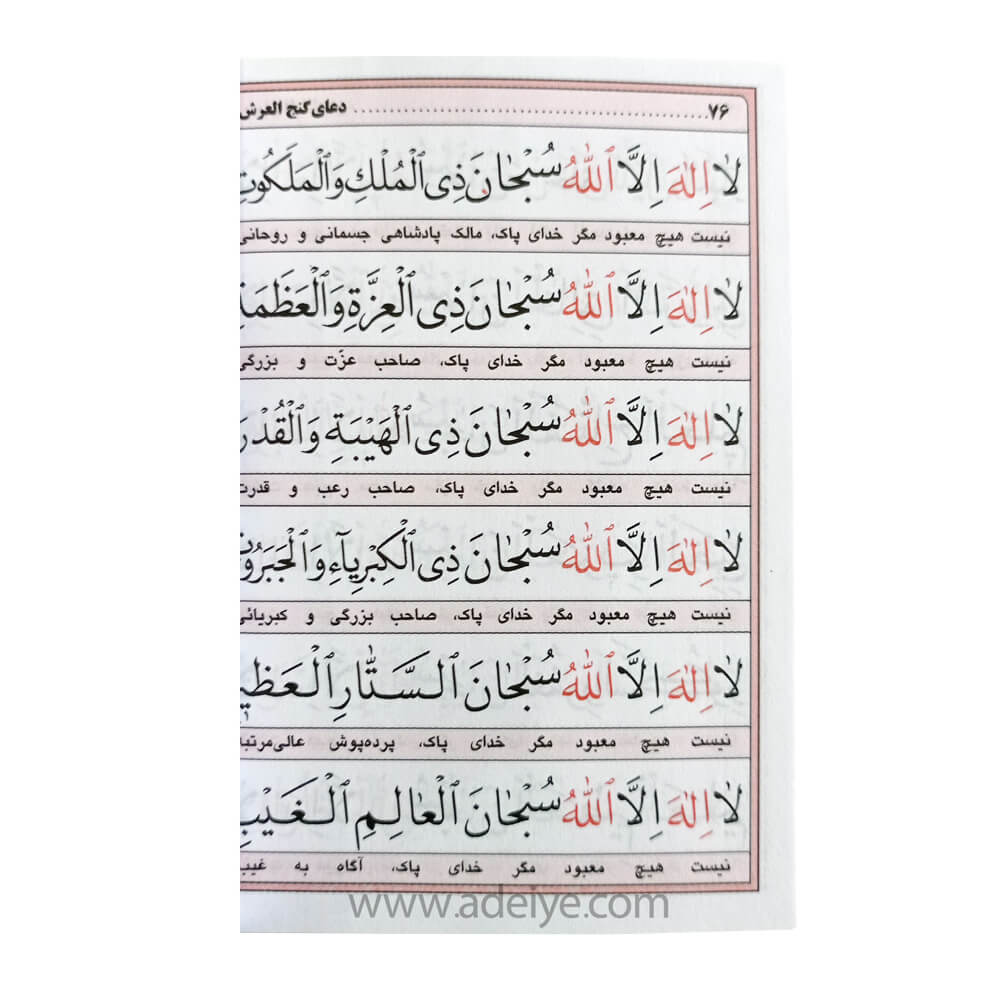 ۷۶ ........ دعای گنج العرش
لاٰ اِلٰهَ اِلاَّ ٱللّٰهُ سُبْحٰانَ ذِی ٱلْمُلْكِ وَٱلْمَلَكُوتِ
نیست هیچ معبود مگر خدای پاک، مالک پادشاهی جسمانی و روحانی
لاٰ اِلٰهَ اِلاَّ ٱللّٰهُ سُبْحٰانَ ذِی ٱلْعِزَّةِ وَٱلْعَظَمَةِ
نیست هیچ معبود مگر خدای پاک، صاحب عزّت و بزرگی
لاٰ اِلٰهَ اِلاَّ ٱللّٰهُ سُبْحٰانَ ذِی ٱلْهَیْبَةِ وَٱلْقُدْرَ
نیست هیچ معبود مگر خدای پاک، صاحب رعب و قدرت
لاٰ اِلٰهَ اِلاَّ ٱللّٰهُ سُبْحٰانَ ذِی ٱلْكِبْرِیآءِ وَٱلْجَبَرُوتِ
نیست هیچ معبود مگر خدای پاک، صاحب بزرگی و کبریائی
لاٰ اِلٰهَ اِلاَّ ٱللّٰهُ سُبْحٰانَ ٱلسَّتّٰارِ ٱلْعَظیـ
نیست هیچ معبود مگر خدای پاک، پرده‌پوش عالی‌مرتبه
لاٰ اِلٰهَ اِلاَّ ٱللّٰهُ سُبْحٰانَ ٱلْعٰالِمِ ٱلْغَیْبِ
نیست هیچ معبود مگر خدای پاک، آگاه به غیب
www.adeiye.com